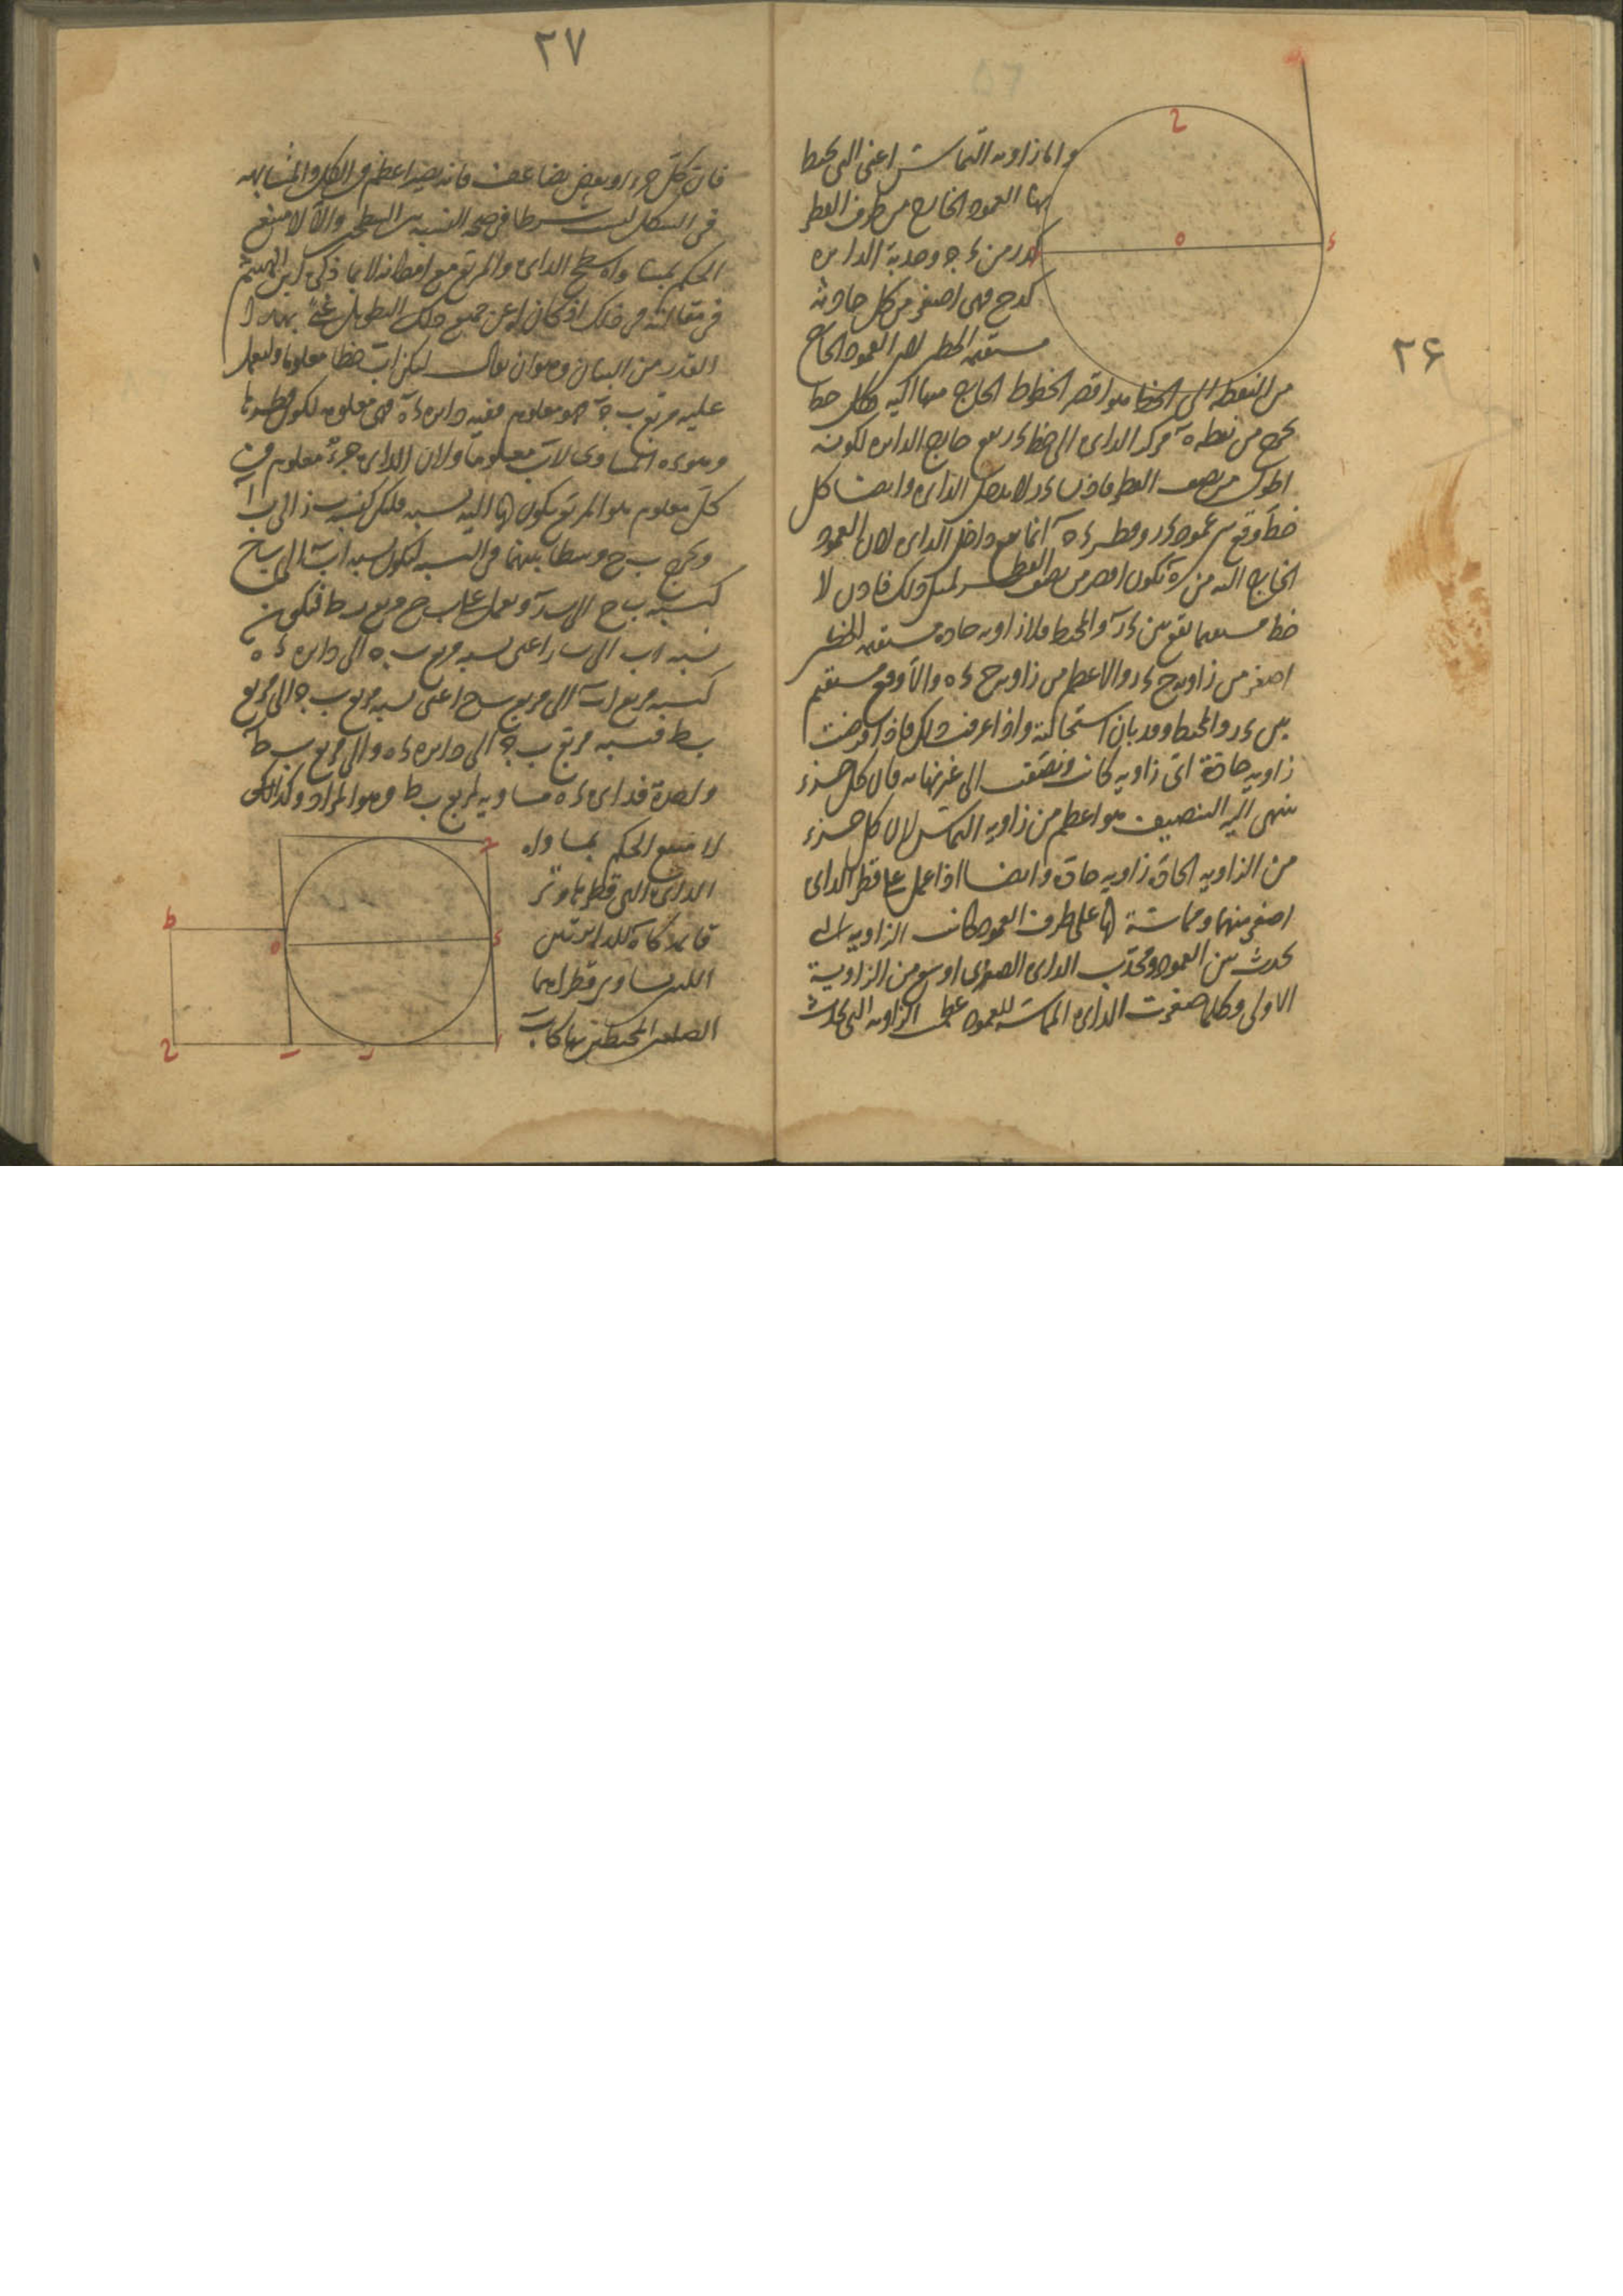 ٢۶
ح
ه
ء
واما زاويه التماس اعنى التى يحيط
بها العمود الخارج من طرف القطر
من ء ج وحدبة الدايره
فهى اصغر من كل حادثة
مستقيمه الخطين لان العمود الخارج
من النقطه الى الخط هو اقصر الخطوط الخارجه منها اليه فكل خط
يخرج من نقطه ه مركز الدايره الى خط ءر يقع خارج الدايره لكونه
اطول من نصف القطر فاذن ءر لا يدخل الدايره وايضا كل
خط وقع بين عمود ءر وقطر ءه انما يقع داخل الدايره لان العمود
الخارج اليه من ه يكون اقصر من نصف القطر لمثل ذلك فاذن لا
خط مستقيما يقع بين ءر والمحيط فلا زاويه حاده مستقيمه الخطين
اصغر من زاويه ح ءر ولا اعظم من زاويه ح ءه والا وقع مستقيم
بين ءر والمحيط وقد بان استحالته واذا عرفت ذلك فاذا فرضت
زاويه حادة اى زاويه كانت ونصفت الى غير نهايه فان كل جزء
ينتهى اليه التنصيف هو اعظم من زاويه التماس لان كل جزء
من الزاويه الحادة زاويه حادة وايضا اذا عمل على قطر الدايره
اصغر منها ومماسة لها على طرف العمود كانت الزاويه التى
تحدث بين العمود ومحدب الدايره الصغرى اوسع من الزاوية
الاولى وكلما صغرت الدايره المماسه للعمود عظمت الزاويه التى تحدث
٢٧
فان كل جزء او بعض يضاعف فانه يصير اعظم من الكل والمشابهه
فى الشكل ليست شرطا فى صحه النسبه بين السطحين والا لامتنع
الحكم بمساواه سطح الدايره والمربع مع امكانه لا بما ذكره ابن الهيثم
فى مقالته فى ذلك اذ كان له عن جميع ذلك التطويل غنى بهذا
القدر من البيان وهو ان يقال ليكن اب خطا معلوما وليعمل
عليه مربع ب ج فهو معلوم ففيه دايره ءه فهى معلومه لكون قطرها
وهو ءه المساوى لاب معلوما ولان الدايره جزء معلوم من
كل معلوم هو المربع يكون لها اليه نسبه فلتكن كنسبه ز الى ب ا
ونخرج ب ح وسطا بينهما فى النسبه لتكون نسبه اب الى ب ح
كنسبه ب ح الى ب ر ونعمل على ب ح مربع ب ط فيكون
نسبه اب الى ب ر اعنى نسبه مربع ب ج الى دايره ءه
كنسبه مربع اب الى مربع ب ح اعنى نسبه مربع ب ج الى مربع
ب ط فنسبه مربع ب ج الى دايره ءه والى مربع ب ط
واحدة فدايره ءه مساويه لمربع ب ط وهو المراد وكذلك
لا يمتنع الحكم بمساواه
الدايره التى قطرها وتر
قايمة للدايرتين
اللتين يساوى قطراهما
الضلعين المحيطين بها كانت
ج
ط
ه
ء
ح
ب
ر
ا